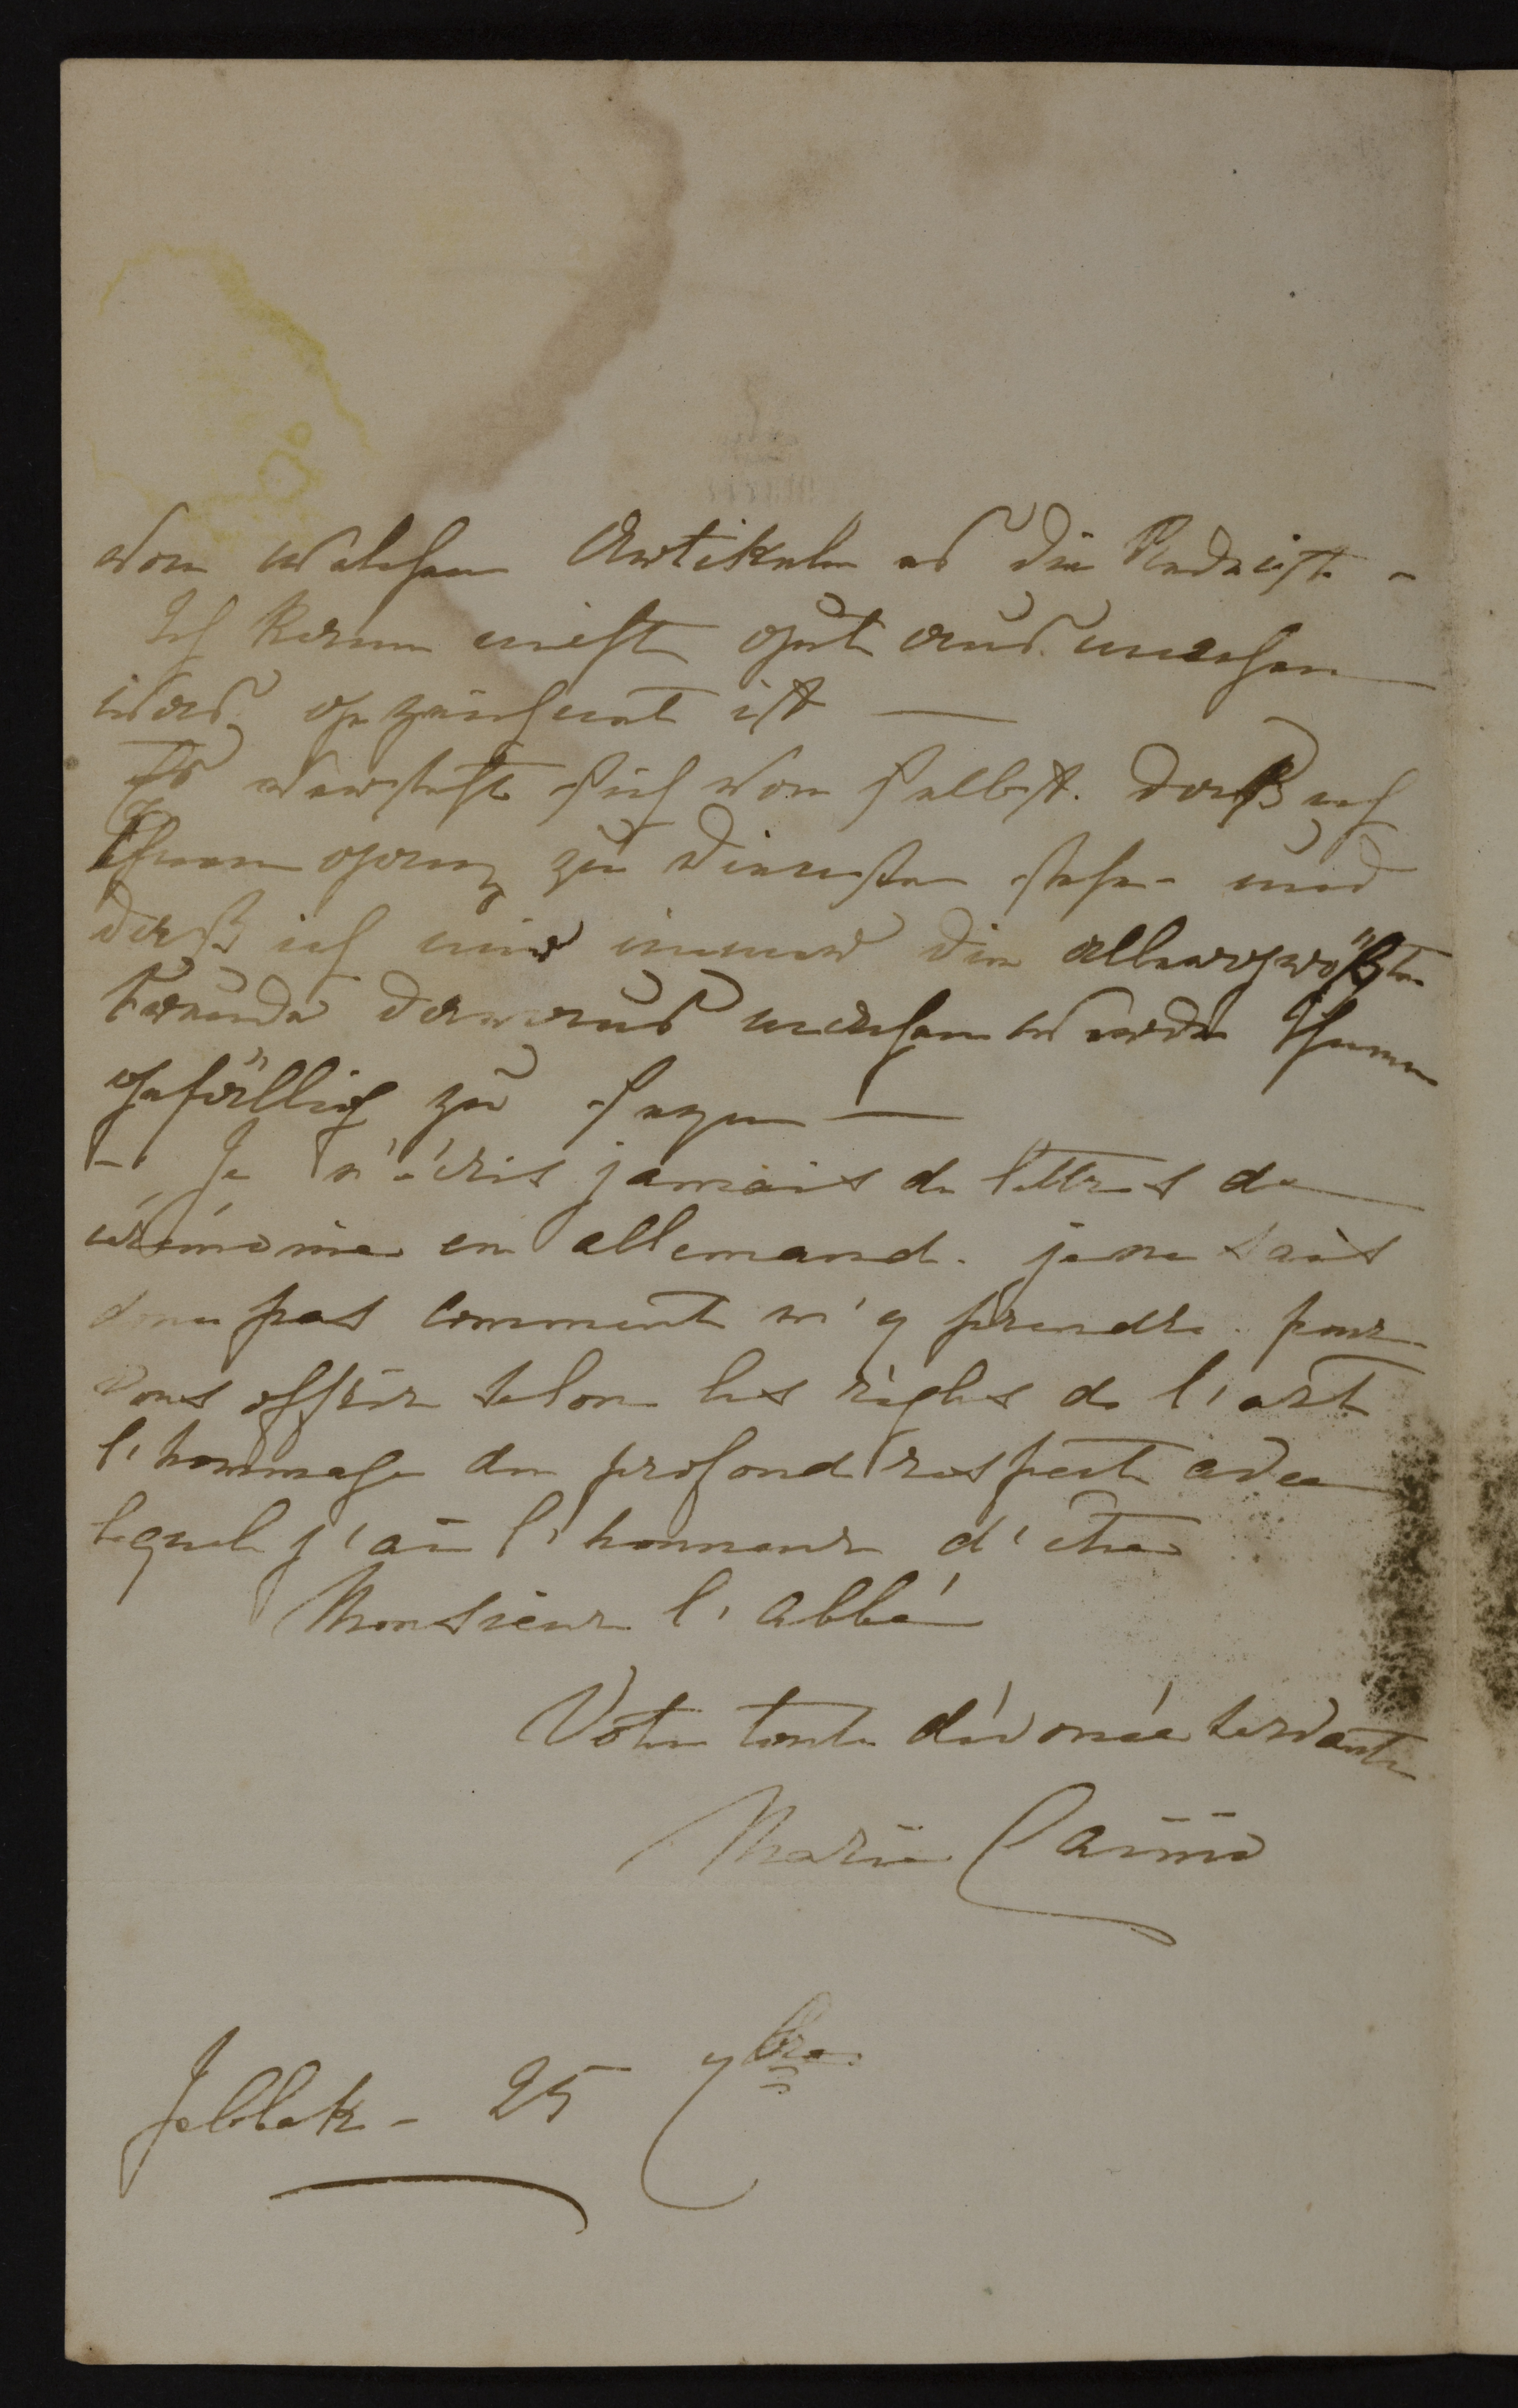 von welchen Artikeln es die Rede ist -
Ich kann nicht gut ausmachen
was gezeichnet ist —
Es versteht sich von selbst. daß ich
Ihnen ganz zu Diensten stehe - und
daß ich mir immer die allergrößte
Freude daraus machen werde Ihnen
gefällig zu seyn —
- Je n'écris jamais de lettres de
cérémonie en allemand. je ne sais
donc pas comment m'y prendre. pour
vous offrir selon les règles de l'art
l'hommage du profond respect avec
lequel j'ai l'honneur d'être
Monsieur l'abbé
Votre toute dévouée servante
Marie
- 25 7bre